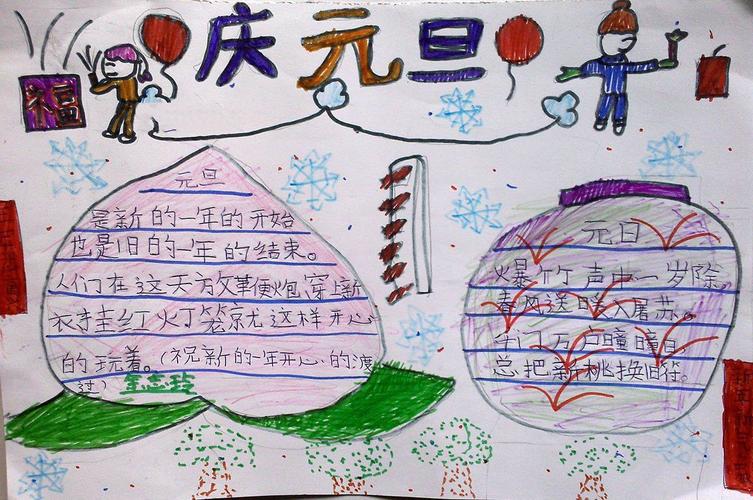 庆元旦
福
元旦
是新的一年的开始
也是旧的一年的结束。
人们在这天放鞭炮穿上新
衣挂红灯笼就这样开心
的玩着。(祝新的一年开心的渡
过)
元日
爆竹声中一岁除
春风送暖入屠苏。
千门万户瞳瞳日
总把新桃换旧符。